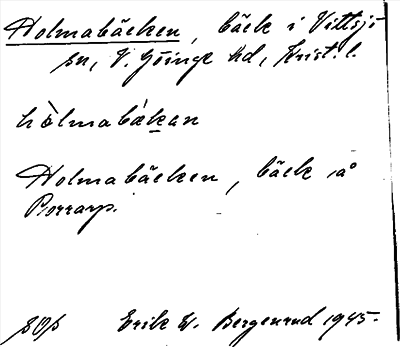 Holmabäcken, bäck i Vittsjö
sn, V. Göinge hd, Krist. l.
hòlmabäkan
Holmabäcken, bäck på
Porrarp.
Erik W. Bergenrud 1945.